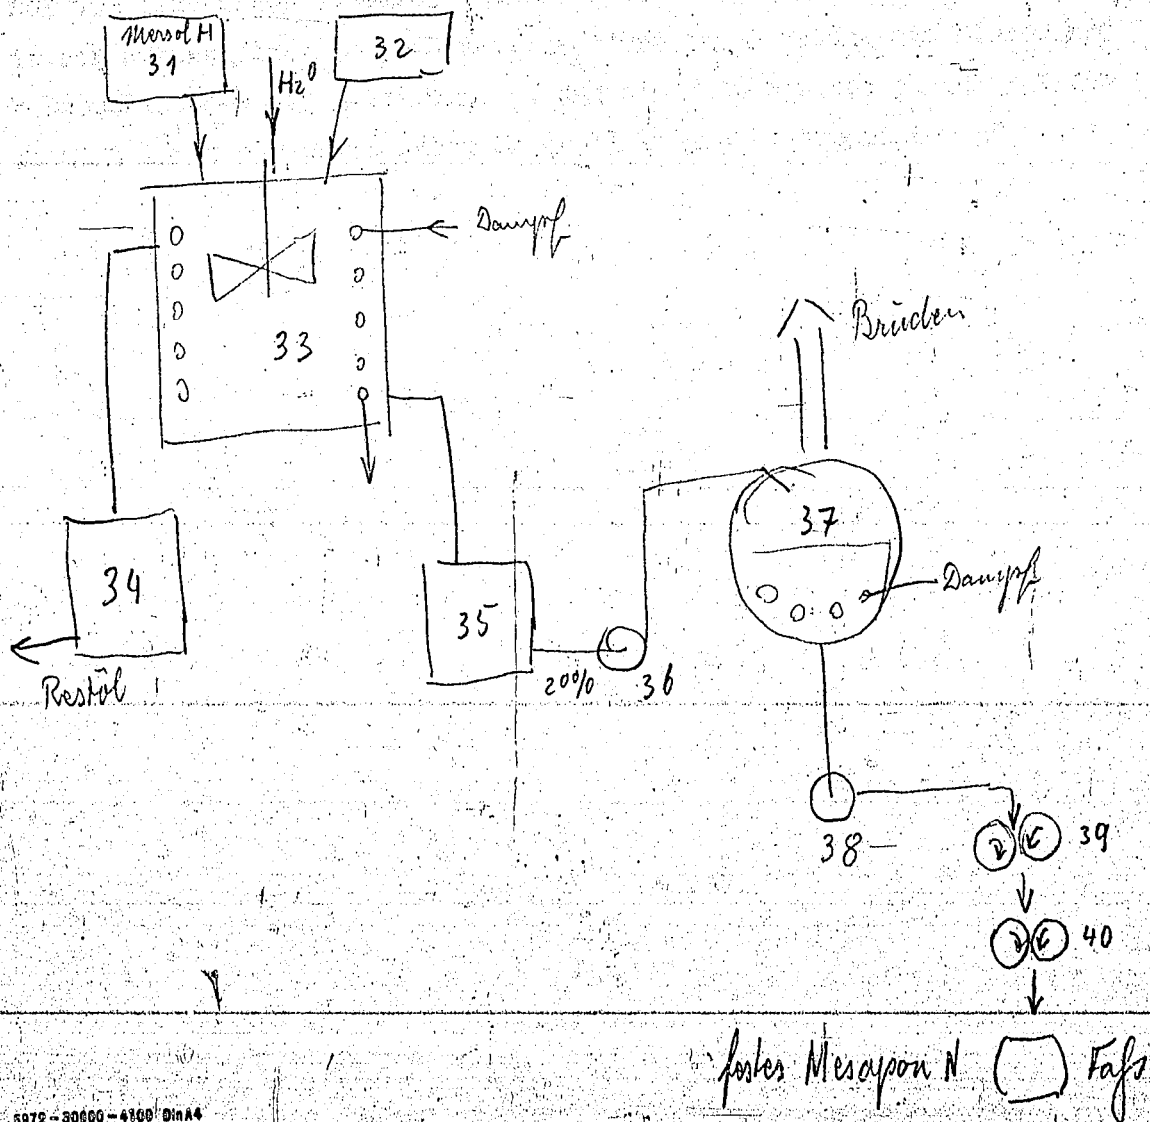 Mersol H
31
H2O
32
Dampf
33
Brüden
37
Dampf
34
35
20%
36
Restöl
38
39
40
festes Mesapon N
Fafs
5972 - 30000 - 4100 Din A4